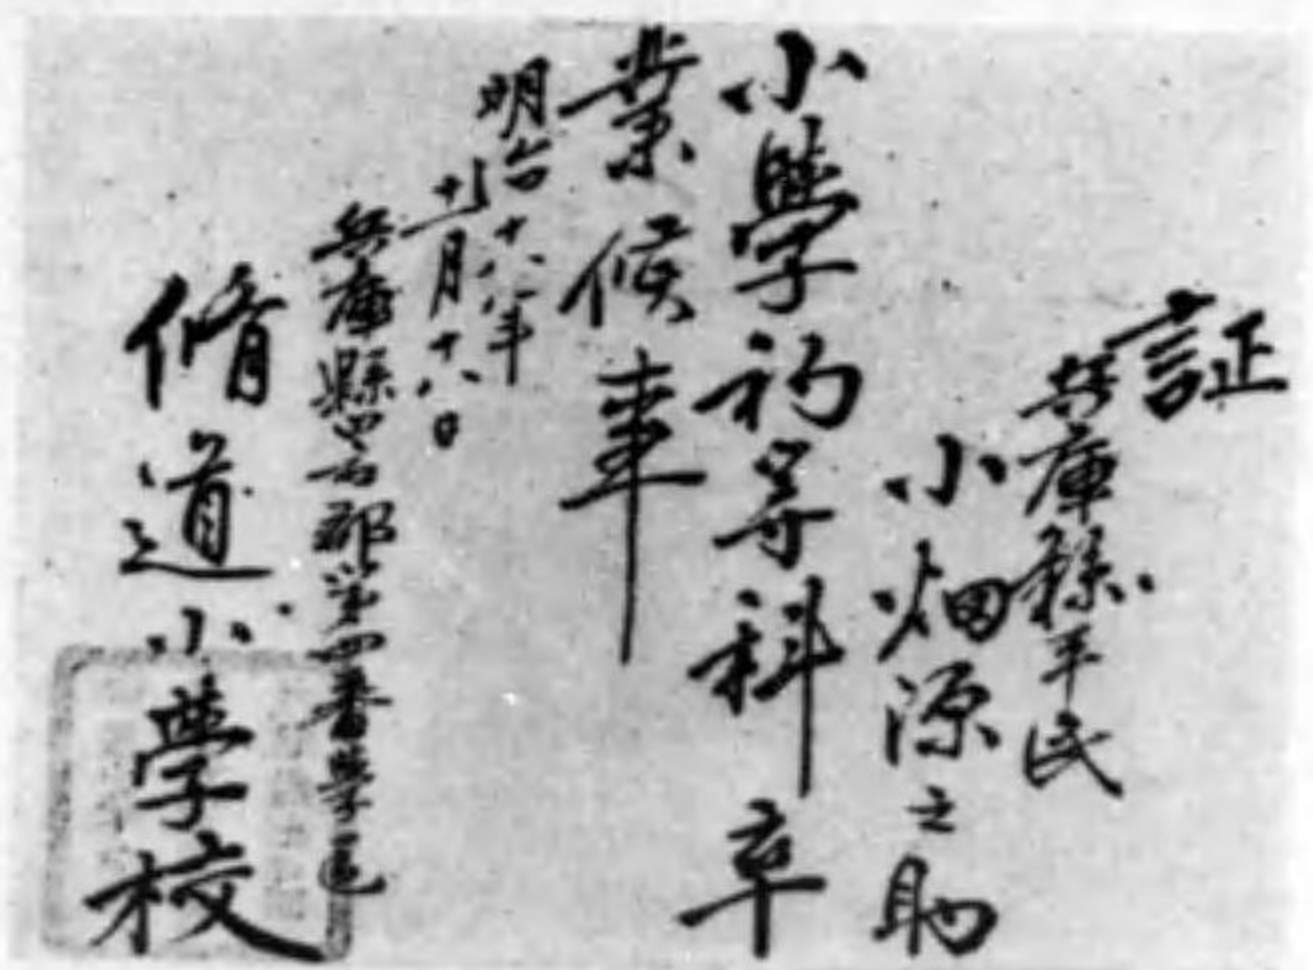 証
兵庫縣平民
小畑源之助
小學初等科卒
業候事
明治十八年
十二月十八日
兵庫縣 郡第四番學區
脩道小學校